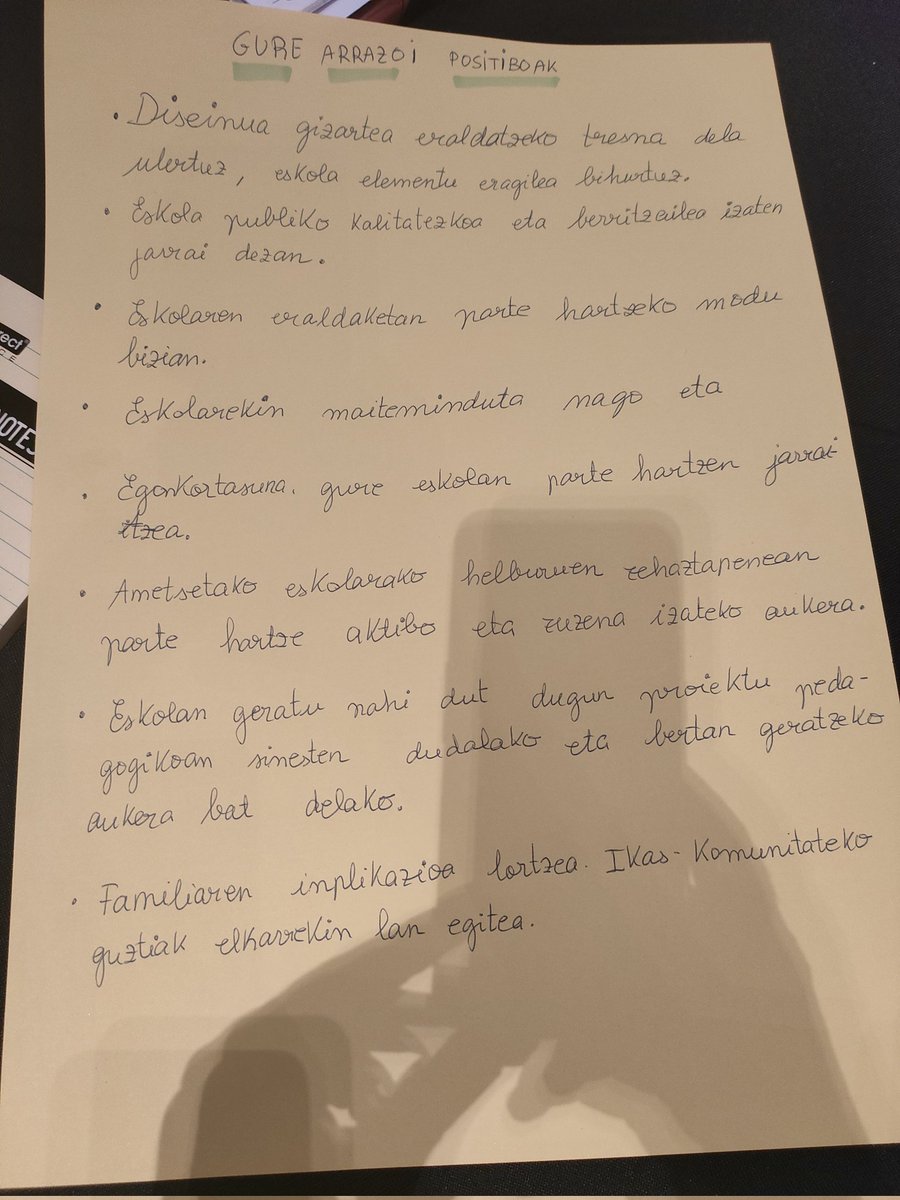 GURE ARRAZOI POSITIBOAK
• Diseinua gizartea eraldatzeko tresna dela
ulertuz, eskola elementu eragilea bihurtuz.
• Eskola publiko kalitatezkoa eta berritzailea izaten
jarrai dezan.
• Eskolaren eraldaketan parte hartzeko modu
bizian.
• Eskolarekin maiteminduta nago eta
• Egonkortasuna. gure eskolan parte hartzen jarrai-
tzea.
• Ametsetako eskolarako helburuen zehaztapenean
parte hartze aktibo eta zuzena izateko aukera.
• Eskolan geratu nahi dut dugun proiektu peda-
gogikoan sinesten dudalako eta bertan geratzeko
aukera bat delako.
• Familiaren inplikazioa lortzea. Ikas-Komunitateko
guztiak elkarrekin lan egitea.
rect
CE
NOTES